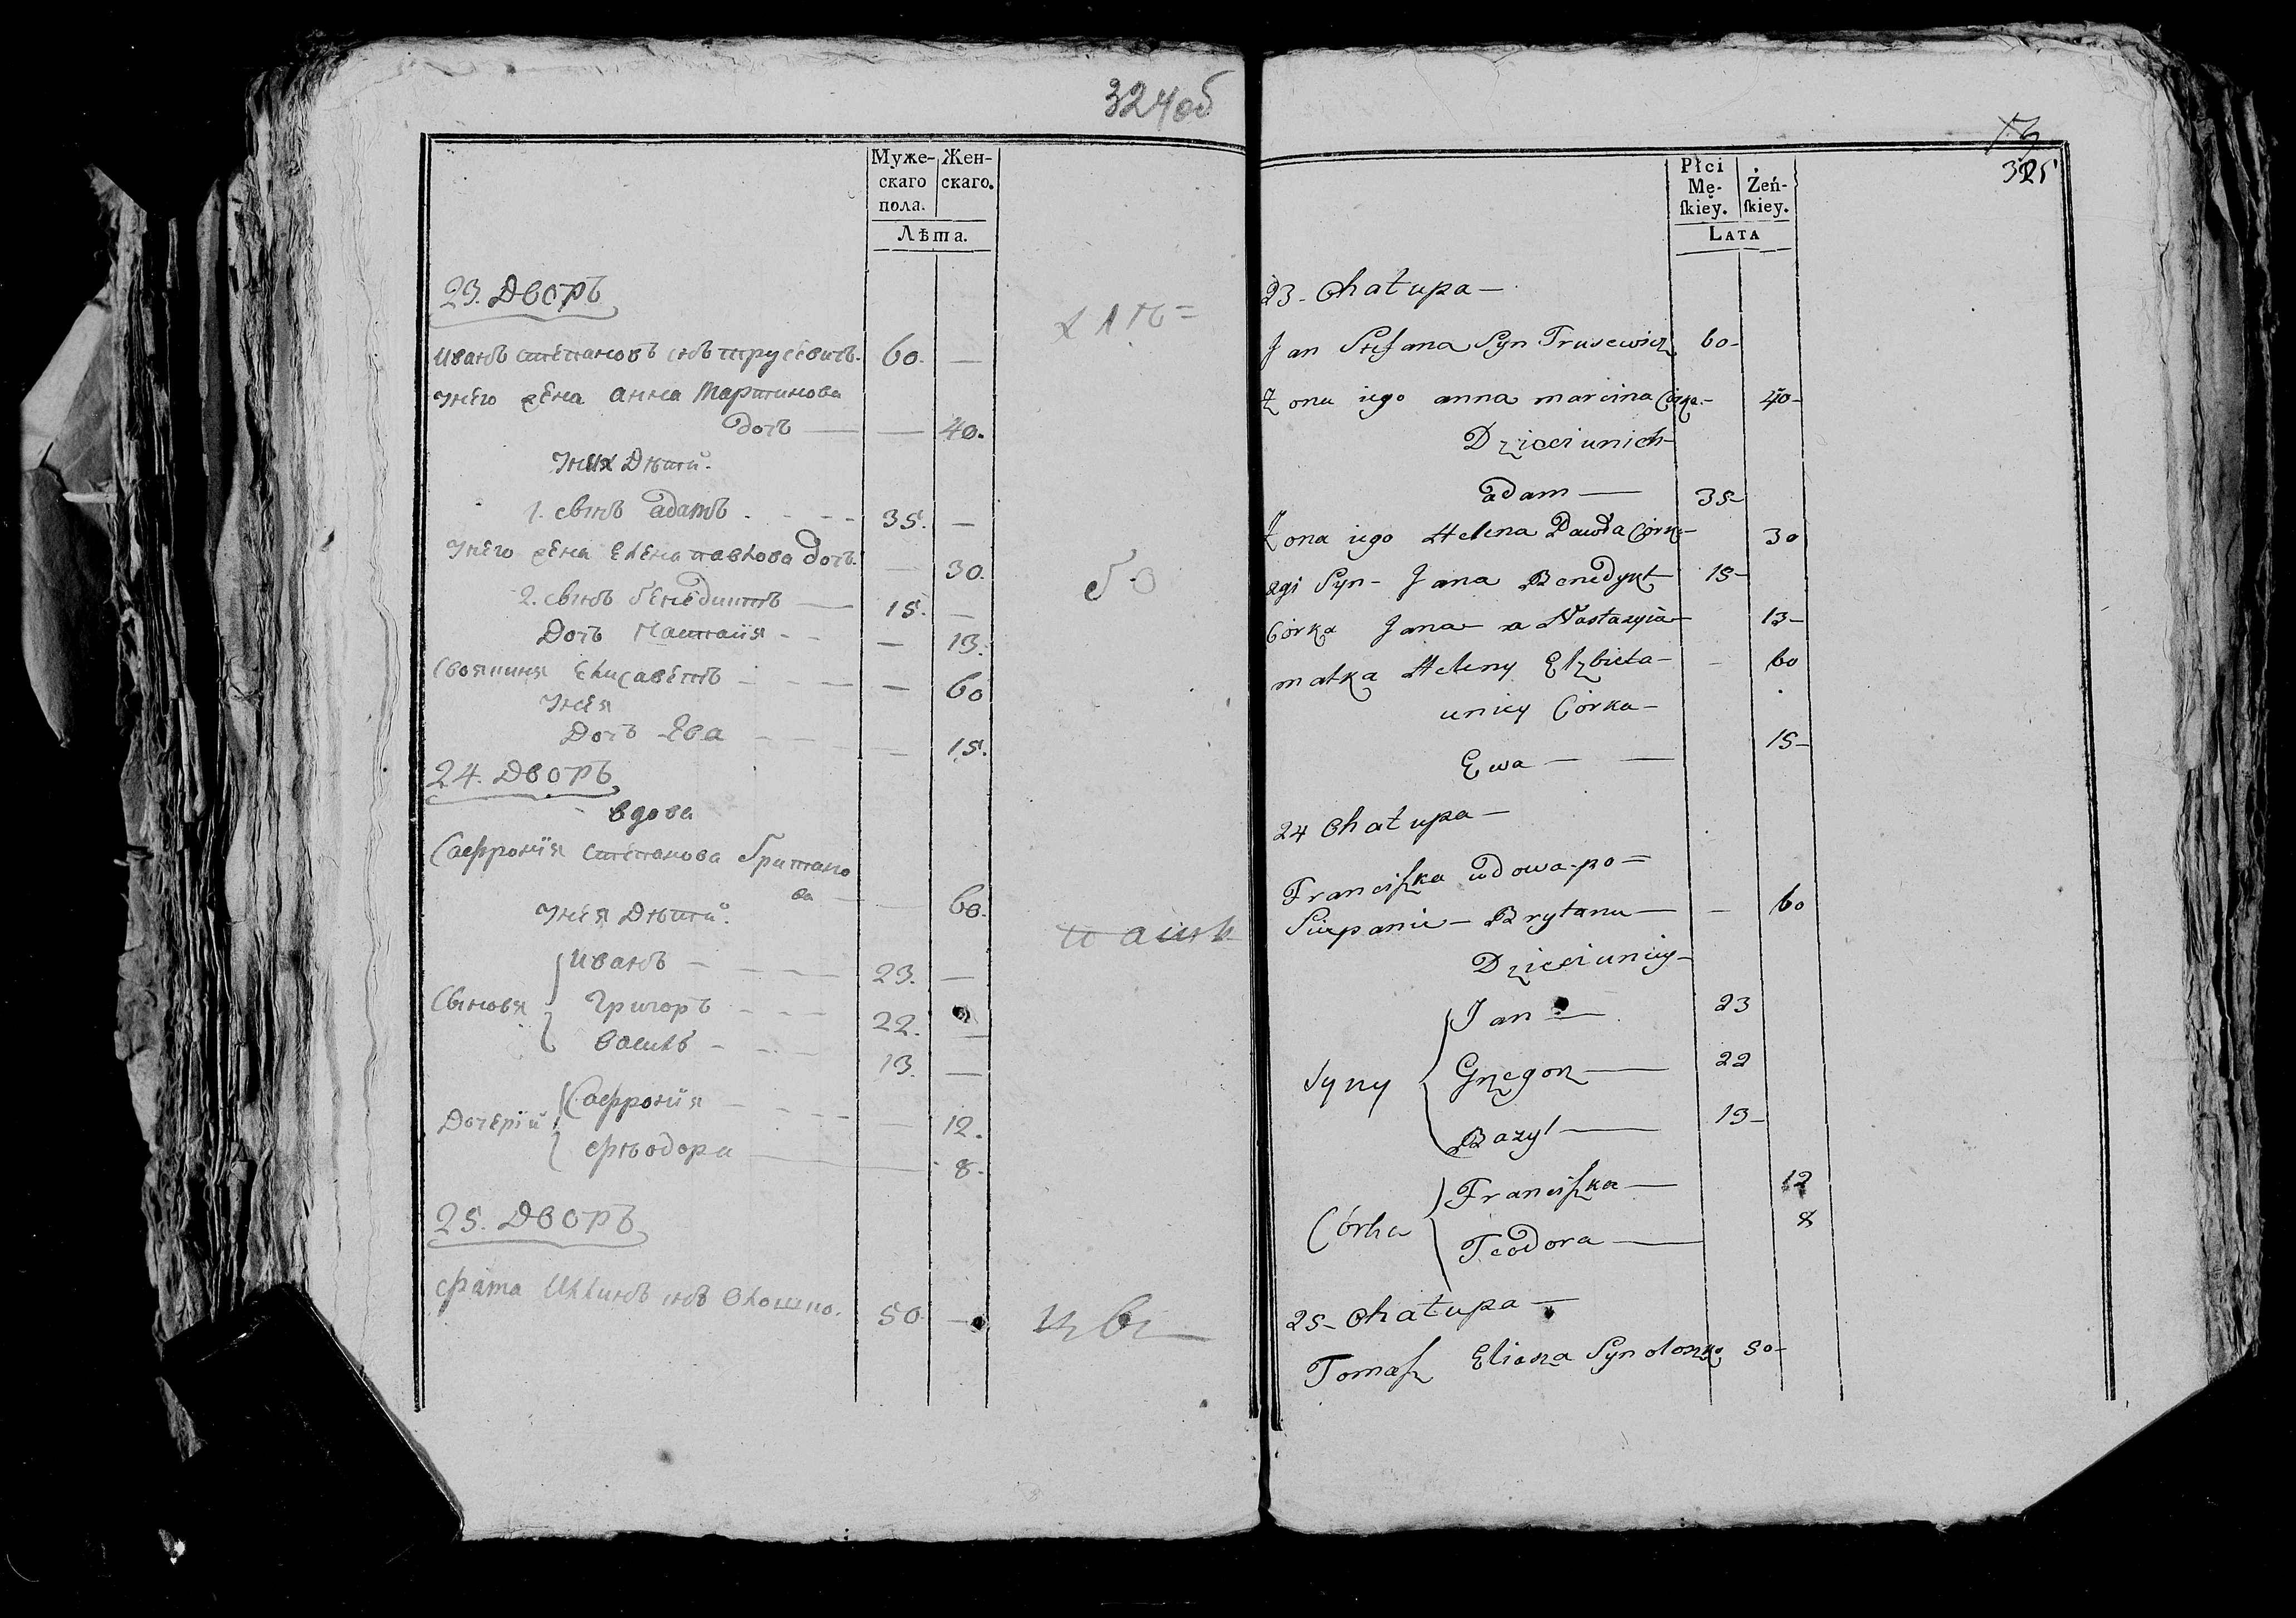 324об
Муже- Жен-
скаго скаго.
пола.
Лѣта.
23. Дворъ
Иванъ Степановъ снъ Трусевичъ. 60. —
У него жена Анна Мартинова
дочь — — 40.
У них Дѣтй.
1. Сынъ Адамъ . - - - 35. —
У него жена Елена Павлова дочь. — 30.
2. Сынъ Бенедиктъ — 15. —
Дочь Настасія - - — 13.
Своячиня Елисаветъ - - - — 60
У нея
Дочь Ева - - — 15.
24. Дворъ
вдова
Софронія Степанова Британо
ва — — 60.
У нея Дѣтй.
Сыновя { Иванъ - - - - 23. —
Григоръ - - - 22. —
Василь - - - 13. —
Дочерій { Софронія - - - - — 12.
Фѣодора — — 8.
25. Дворъ
Фома Иллинъ снъ Олошко. 50. —
73
325
Płci
Mę- Żeń-
ſkiey. ſkiey.
LATA
23 - Chałupa —
Jan Stefana Syn Trusewicz 60 -
Żona iego anna marcina Córka - 40 -
Dzieci unich -
adam — 35 -
Żona iego Helena Pawła Córka - 30
2gi Syn - Jana Benedykt - 15 -
Córka Jana - a Nastazyia - 13 -
matka Heleny Elzbieta - - 60
uniey Córka -
Ewa — — 15 -
24 Chałupa —
Franciſzka wdowa - po =
Sciepanie - Brytanu — - 60
Dzieci uniey -
Syny { Jan — 23
Grzegorz — 22
Bazyl — 13 -
Córka { Franciſzka — 12
Teodora — 8
25 - Chałupa —
Tomaſz Eliasza Syn oloszko 50 -